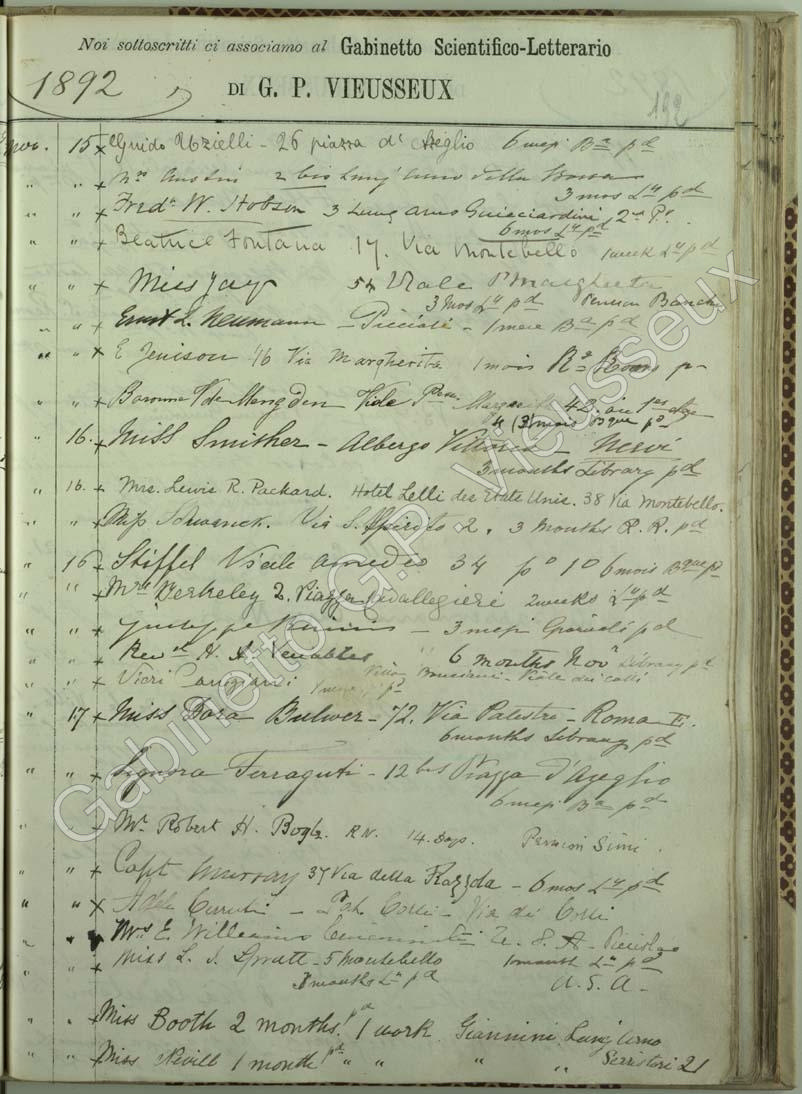 Noi sottoscritti ci associamo al Gabinetto Scientifico-Letterario
1892
DI G. P. VIEUSSEUX
192
Nov. 15 x Guido Uzielli - 26 piazza d'Azeglio 6 mesi Ba pd
" " x Austin 2 bis Lung' Arno della
3 mos Ly pd
" " x Fredk W. Hobson 3 Lung Arno Guicciardini, 2nd Po.
6 mos Ly pd
" " x Beatrice Fontana 17. Via Montebello 1 week Ly pd
" " x Miss Jay 54 Viale Pss Margherita
3 Mos Ly pd Pension Banchi
" " x Ernst L. Neumann - Piccioli - 1 mese Ba pd
" " x E Jenison 16 Via Margherita 1 mois Rg Room p-
" " x Baronne V de Mengden Viale Psse 42. au 1er
(3) mois Bque pd
" 16. x Miss Smither - Albergo Vittoria - Nervi
3 months Library pd
" 16. x Mrs. Lewis R. Packard. Hotel Lelli des Etats Unis. 38 Via Montebello.
" " x Miss Schwanck. Via S. Spirito 2. 3 Months R. R. pd
" 16 x Stiffel Viale Amedeo 34 po 1o 6 mois Bque pd
" " x Mrs Berkeley 2. Piazza Cavallegieri 2 weeks Ly pd
" " x Giuseppe - 3 mesi Giornali pd
" " x Revd H. A. Venables " 6 months Novr Library pd
" " x Vieri Canigiani 1 mese pd Villa - Viale dei Colli
" 17 x Miss Dora Bulwer - 72. Via Palestro - Roma
6 months Library pd
" " x Signora Ferraguti - 12 bis Piazza d'Azeglio
6 mesi Ba pd
" " x Mr Robert H. Bogle R.N. 14 days. Pension Simi.
" " x Capt Murray 37 Via della Robbia - 6 mos Ly pd
" " x Adele Cerruti - Via dei Colli
" " Mrs E. Williams U. S. A - Piccioli
" " x Miss L. J. Spratt - 5 Montebello 1 month Ly pd
3 months Ly pd U. S. A -
" " x Miss Booth 2 months pd 1 work Giannini Lung' Arno
" " x Miss Nevill 1 month pd " " " " Serristori 21
Gabinetto G.P. Vieusseux